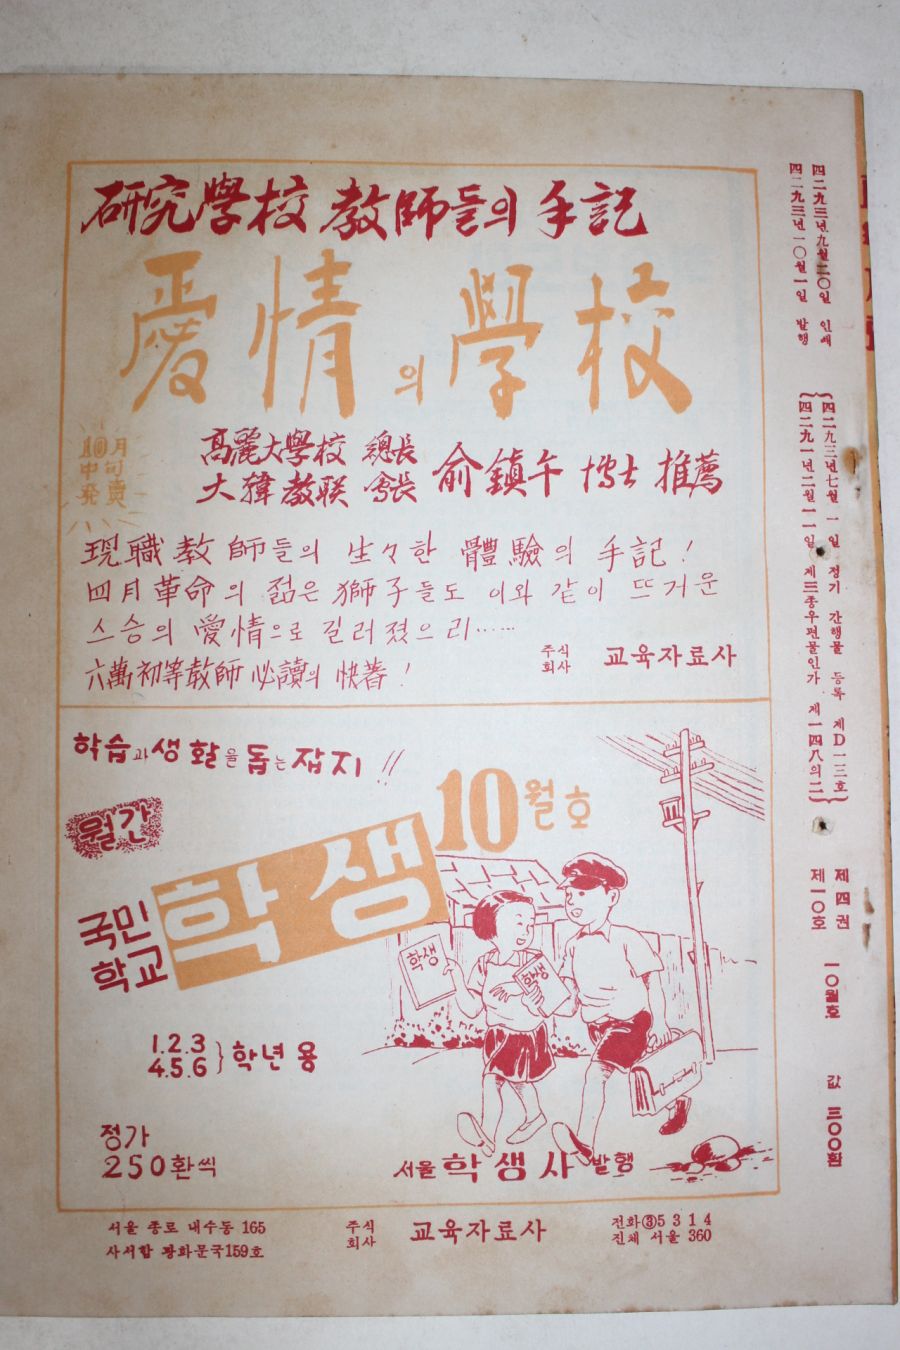 研究學校 敎師들의 手記
愛情의 學校
月
中旬
発賣
高麗大學校 總長
大韓敎联 會長
俞鎭午 博士 推薦
現職敎師들의 生々한 體驗의 手記!
四月革命의 젊은 獅子들도 이와 같이 뜨거운
스승의 愛情으로 길러졌으리……
六萬初等敎師 必讀의 快著!
주식
회사
교육자료사
학습과 생활을 돕는 잡지!!
월간
국민
학교
학생
10월호
학생
학생
1.2.3
4.5.6
}학년용
정가
250환씩
서울 학생사 발행
서울 종로 내수동 165
사서함 광화문국159호
주식
회사
교육자료사
전화③5314
진체 서울 360
四二九三년九월二〇일 인쇄
四二九三년一〇월一일 발행
四二九三년七월 一일 정기 간행물 등록 제D一三호
四二九一년二월一一일 제三종우편물인가 제一四八의二
제四권
제一〇호
一〇월호
값 三〇〇환